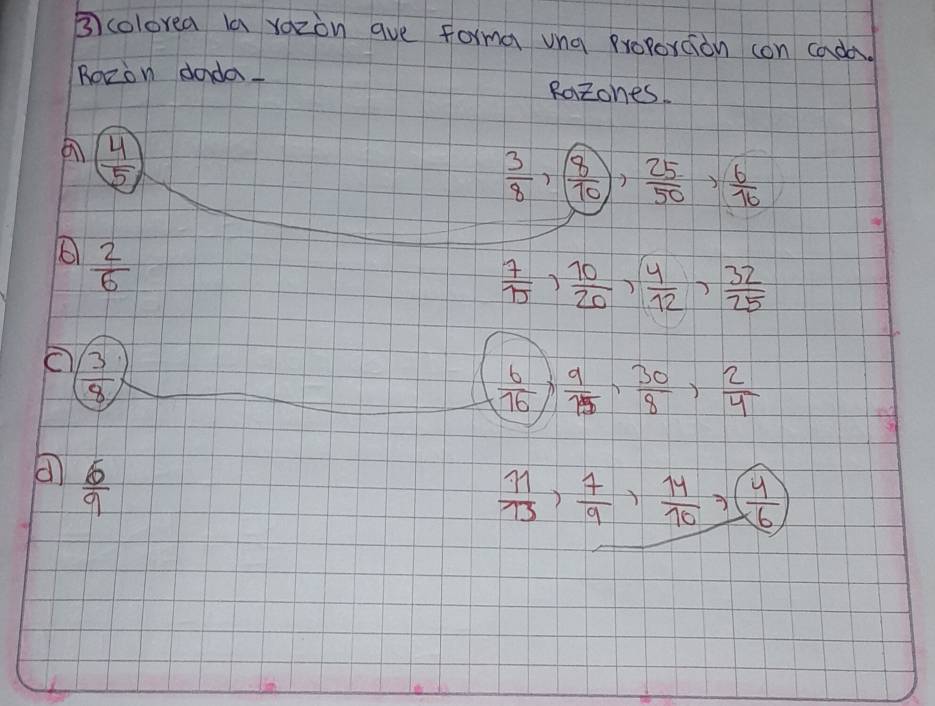 3) colorea la razòn que forma una Proporción con cada.
Razòn dada-
Razones.
a) 4/5 3/8, 8/10, 25/50, 6/16
b) 2/6 7/15, 10/20, 4/12, 32/25
c) 3/8 6/16, 9/15, 30/8, 2/4
d) 6/9 11/13, 7/9, 14/10, 4/6